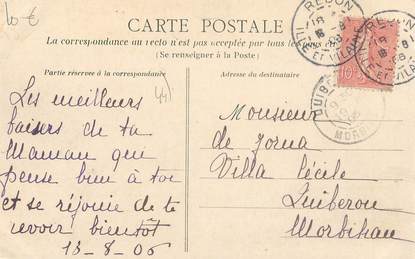 10 €
CARTE POSTALE
La correspondance au recto n'est pas acceptée par tous les
(Se renseigner à la Poste)
Partie réservée à la correspondance
Adresse du destinataire
Les meilleurs
baisers de ta
Maman qui
pense bien à toi
et se réjouie de te
revoir bientôt
13-8-06
Monsieur
de Jorna
Villa Cécile
Quiberon
Morbihan
ILLE ET VILAINE
ILLE ET VILAINE